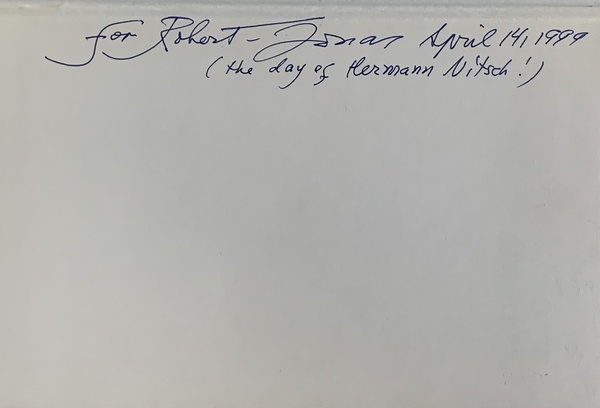 for Robert – Jonas April 14, 1999
(the day of Hermann Nitsch!)